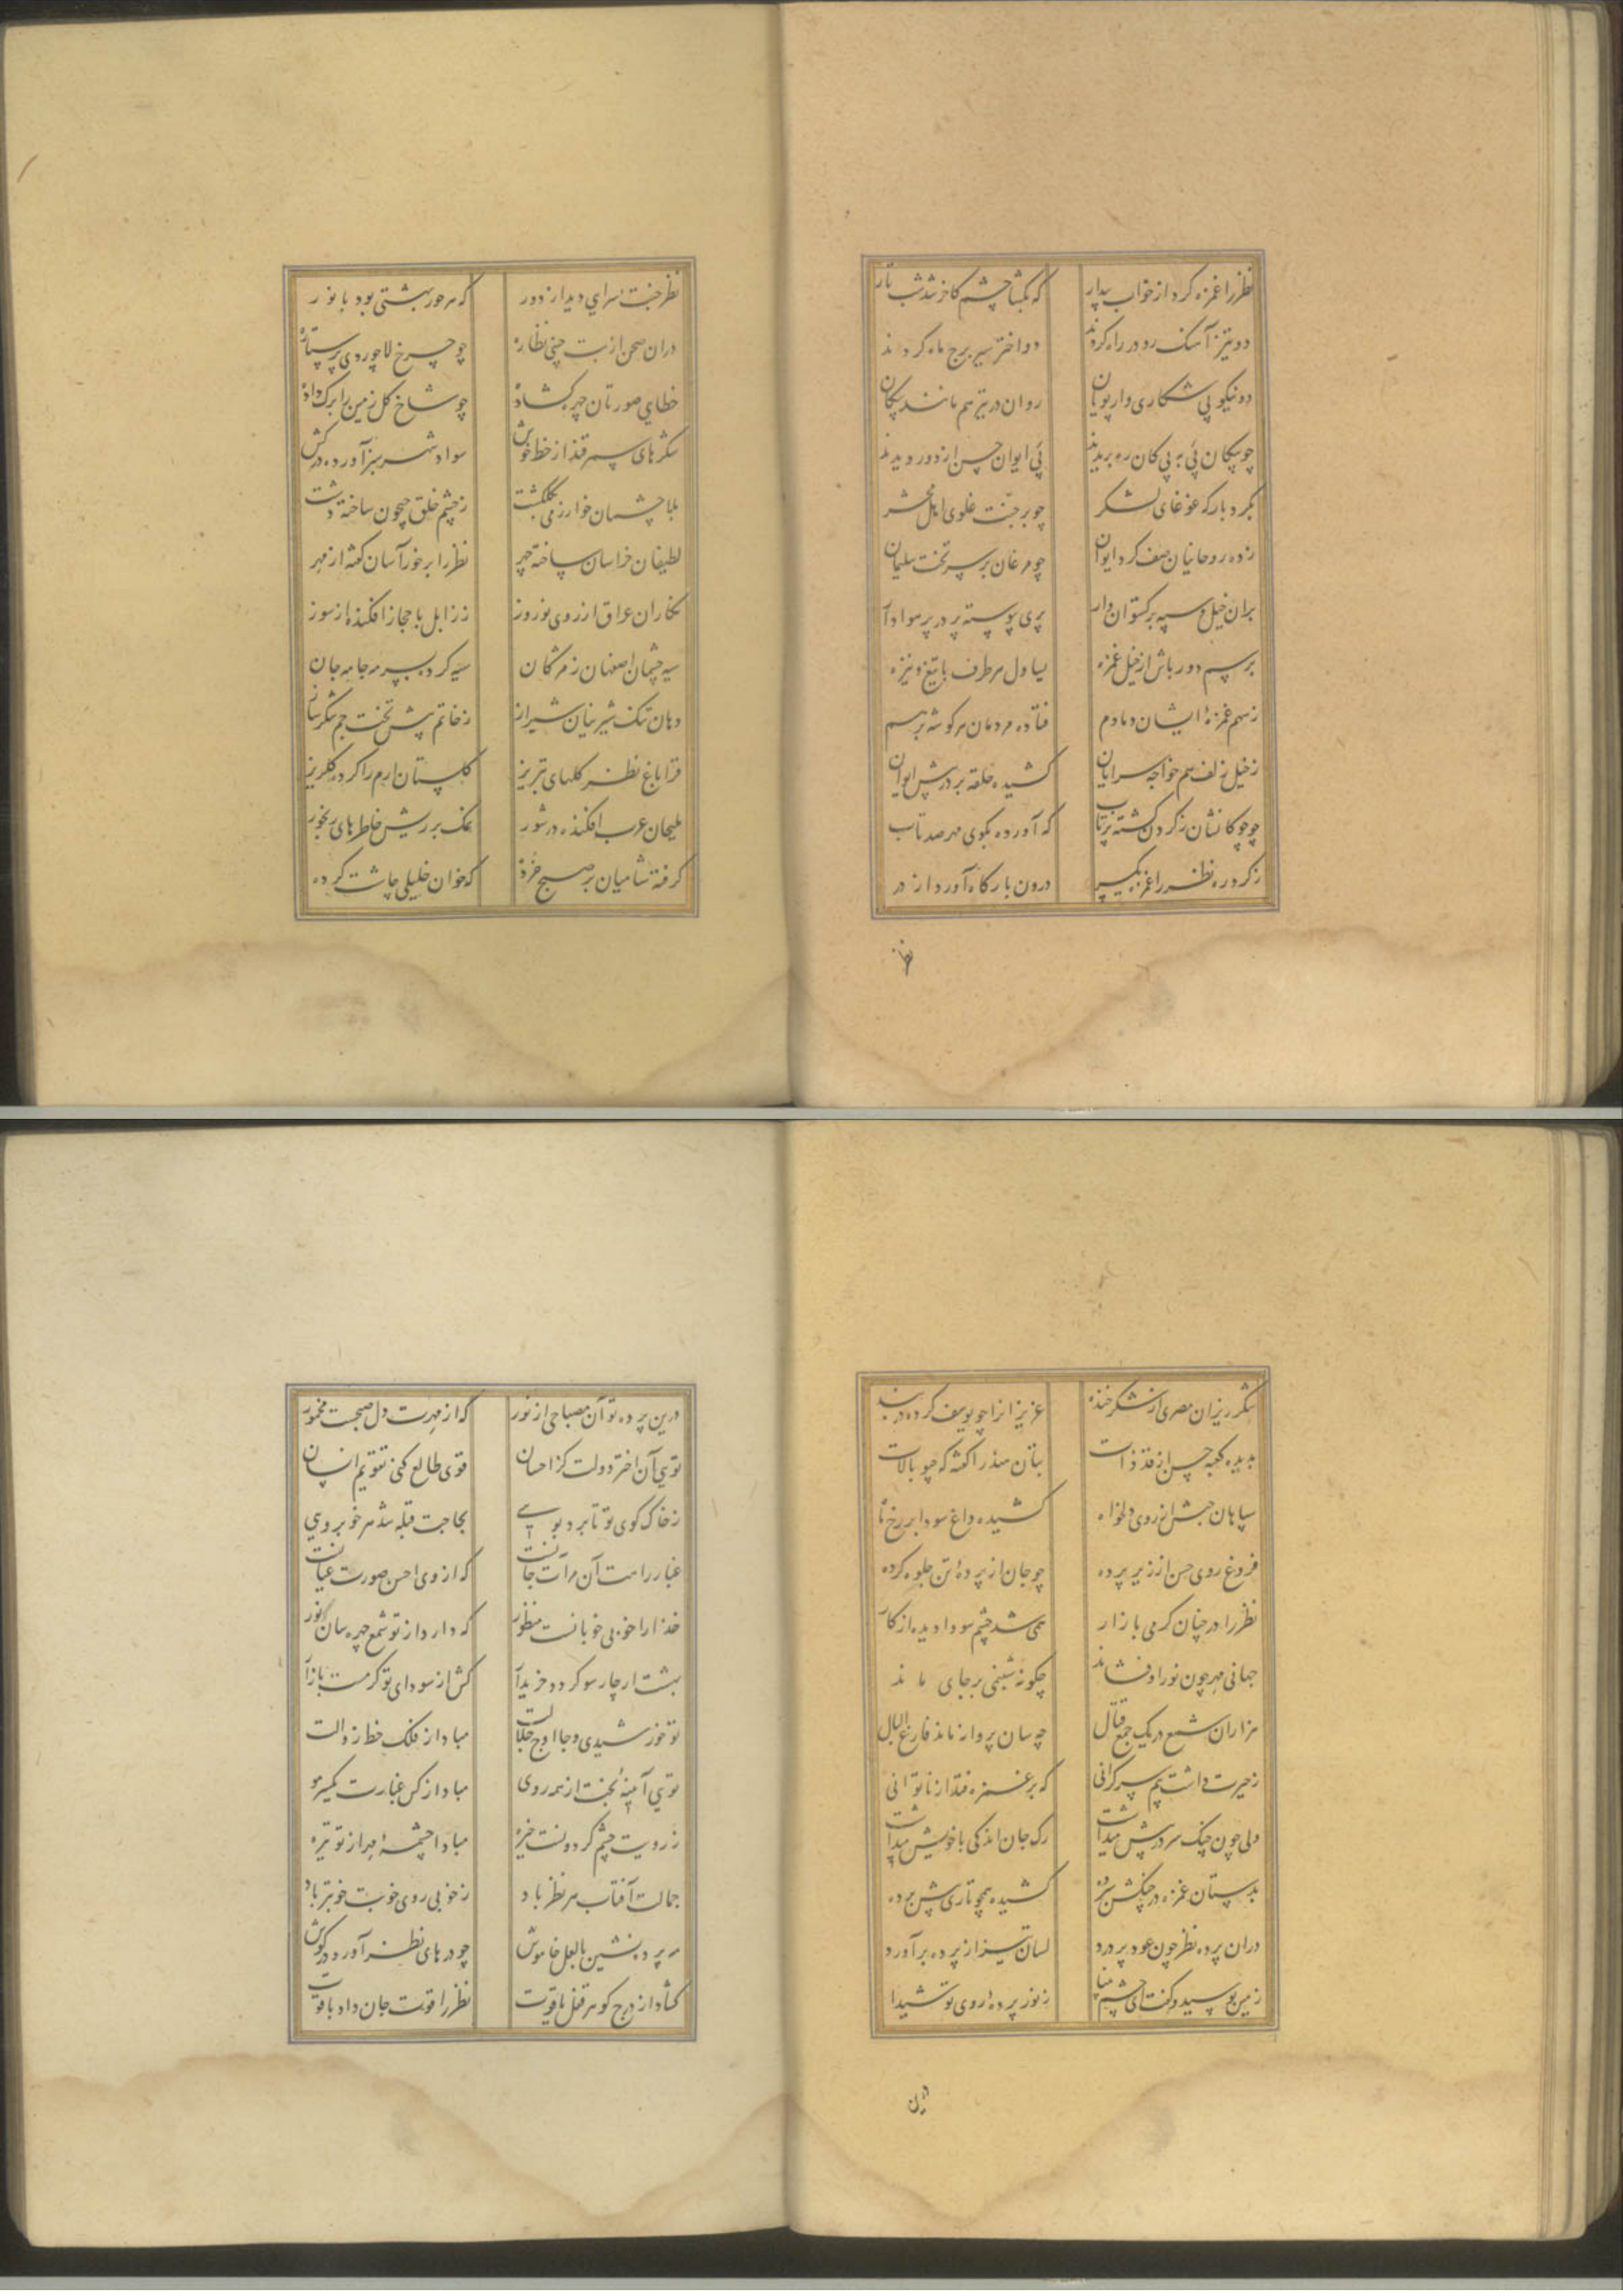 نظر را غمزه کرد از خواب بیدار که بگشا چشم کاخر شد شب تار
دو تیز آهنگ رو در راه کردند دو اختر سیر برج ماه کردند
دو نیکو پی شکاری وار پویان روان در تیر هم مانند پیکان
چو پیکان پی به پی کان ره بریدند پی ایوان حسن از دور دیدند
بگرد بارگه غوغای لشکر چو بر جنت غلوی اهل محشر
زده روحانیان صف گرد ایوان چو مرغان بر سر تخت سلیمان
بران خیل و سپه برگستوان وار پری پیوسته پر در پر هوادار
برسم دورباش از خیل غمزه یساول هر طرف با تیغ و نیزه
ز سهم غمزهٔ ایشان دمادم فتاده مردمان هر گوشه برهم
ز خیل زلف هم خواجه سرایان کشیده حلقه بر در پیش ایوان
چو چوکانشان ز کردن کشته پرتاب که آورده بگوی مهر صد تاب
ز کرد ره نظر را غمزه یکسر درون بارگاه آورد از در
نظر
نظر جنت سرای دید از دور که هر حور بهشتی بود با نور
دران صحن از بت چینی نظاره چو چرخ لاجوردی پر ستاره
خطای صورتان چهر گشاده چو شاخ گل زمین را برگ داده
شکرهای سمرقند از خط خوش سواد شهر سبز آورده درکش
بلا چشمان خوارزمی بگلگشت ز چشم خلق جیحون ساخته دشت
لطیفان خراسان ساخته چهر نظر را بر خور آسان گشته از مهر
نگاران عراق از روی نوروز ززابل با حجاز افکنده از سوز
سیه چشمان اصفهان ز مژگان سیه کرده بسرمه جامه جان
دهان تنک شیرینان شیراز ز خاتم پیش تخت جم شکرساز
قزاباغ نظر گلهای تبریز گلستان ارم را کرده گلریز
ملیحان عرب افکنده در شور نمک بر ریش خاطرهای رنجور
گرفته شامیان بر صبح خرده که خوان خلیلی چاشت کرده
شکر ریزان مصری از شکر خنده عزیزانرا چو یوسف کرده در بند
بدیده کعبه حسن از قد و ذات بتان هند را گشته که هیهات
سپاهان حبش از روی دلخواه کشیده داغ سودا بر رخ ماه
فروغ روی حسن از زیر پرده چو جان از پردهٔ تن جلوه کرده
نظر را در چنان گرمی بازار همی شد چشم سودا دیده از کار
جهانی مهر چون نور او فشاند چگونه شبنمی بر جای ماند
هزاران شمع در یک جمع قتال چه سان پروانه ماند فارغ البال
ز حیرت داشت بیم سرگرانی که بر غمزه فتد از ناتوانی
ولی چون چنگ سر در پیش میداشت رک جان اندکی با خویش میداشت
بدستان غمزه در چنگش سپرده کشیده همچو تاری پیش پرده
دران پرده نظر چون عود پر درد لسان تیز از پرده برآورد
زمین بوسید و گفت ای چشم بینا ز نور پردهٔ روی تو شیدا
درین
درین پرده تو آن مصباحی از نور که از مهرت دل صبحست مخمور
تویی آن اختر دولت کز احسان قوی طالع کنی تقویم انسان
ز خاک کوی تو تا برد بویی بحاجت قبله شد هر خوبرویی
غبار راهت آن مرآت جانست که از وی احسن صورت عیانست
خدا را خوبی خوبانست منظور که دارد از تو شمع چهره سان نور
بهشت ار چارسو گردد خریدار کش از سودای تو گرمست بازار
تو خورشیدی و جا اوج جلالت مبادا از فلک خط زوالت
تویی آیینهٔ بخت از همه روی مبادا از کس غبارت یکسر مو
ز رویت چشم گردونست خیره مبادا چشمهٔ مهر از تو تیره
جمالت آفتاب هر نظر باد ز خوبی روی خوبت خوبتر باد
مه پرده نشین با لعل خاموش چو درهای نظر آورد در گوش
گشاد از درج گوهر قفل یاقوت نظر را قوت جان داد یاقوت